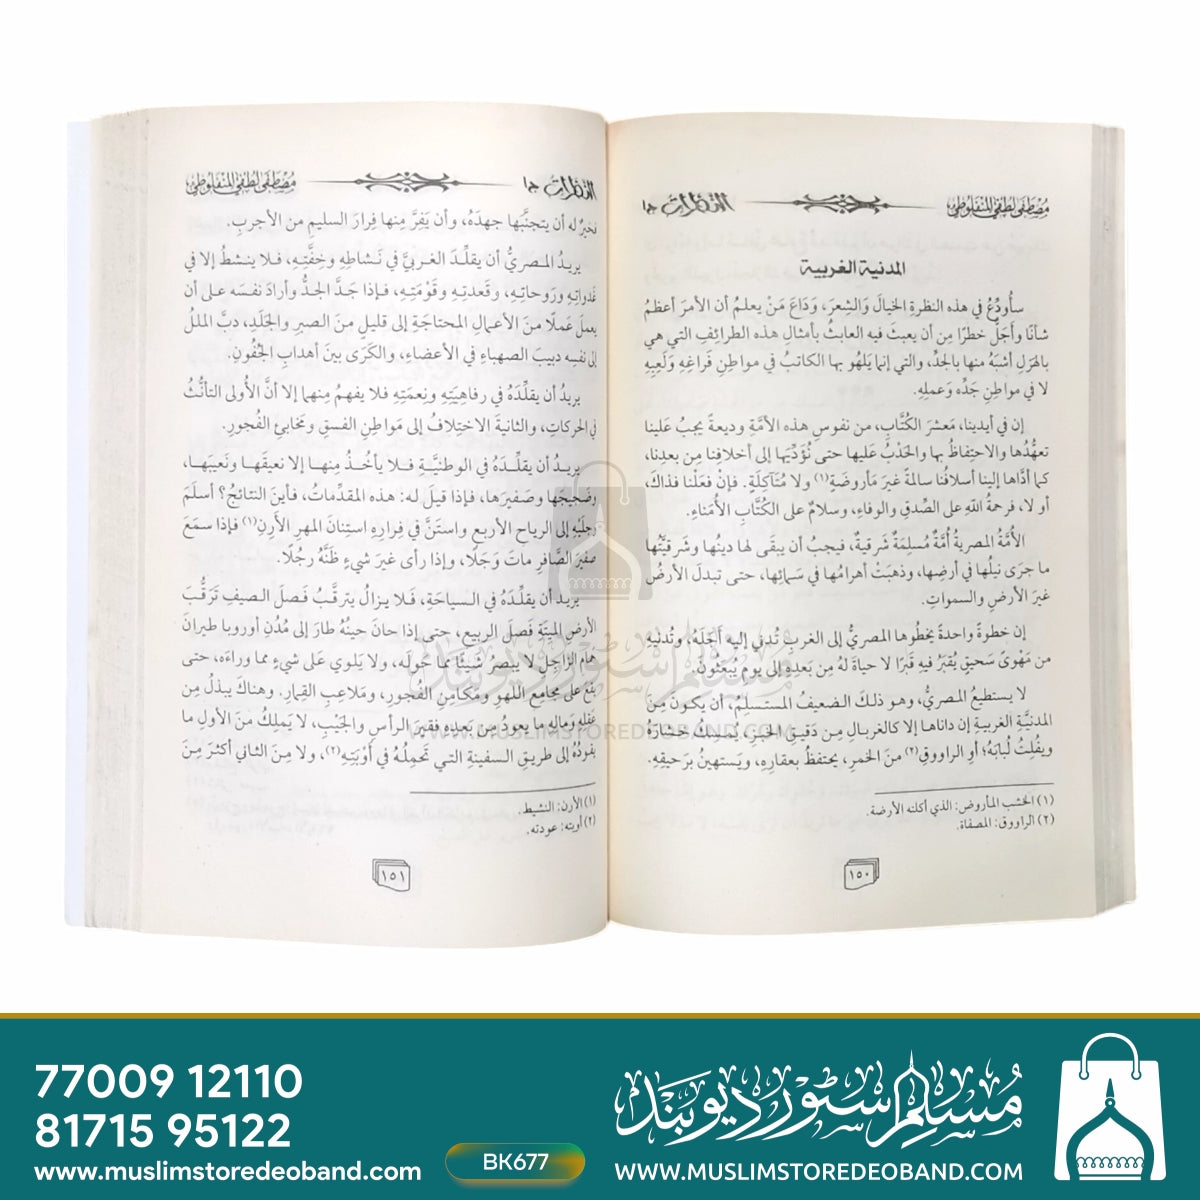 مصطفى لطفي المنفلوطي
النظرات جـ١
المدنية الغربية
سأودِّعُ في هذه النظرةِ الخيالَ وَالشِعرَ، وَدَاعَ مَنْ يعلمُ أن الأمرَ أعظمُ
شأنًا وأَجَلُّ خطرًا مِن أن يعبثَ فيه العابثُ بأمثالِ هذه الطرائِفِ التي هي
بالهَزلِ أشبَهُ منها بالجدِّ، والتي إنما يَلهُو بها الكاتبُ في مواطنِ فَراغِهِ وَلَعِبِهِ
لا في مواطنِ جَدِّه وَعملِهِ.
إن في أيدينا، مَعشرَ الكُتَّابِ، من نفوسِ هذه الأمَّةِ وديعةً يجبُ عَلينا
تعهُّدُها والاحتِفاظُ بها والحَدَبُ عَليها حتى نُؤَدِّيَها إلى أخلافِنا مِن بعدِنا،
كما أدَّاها إلينا أسلافُنا سالمةً غيرَ مَأروضَةٍ (١) ولا مُتَآكِلَةٍ. فإنْ فعَلْنا فذاكَ،
أو لا، فرحمةُ اللهِ على الصِّدقِ والوفاءِ، وسلامٌ على الكُتَّابِ الأُمَناءِ.
الأُمَّةُ المصريةُ أُمَّةٌ مُسلِمَةٌ شَرقيةٌ، فيجبُ أن يبقَى لها دينُها وشَرقيَّتُها
ما جرَى نيلُها في أرضِها، وذهبَتْ أهرامُها في سَمائِها، حتى تبدلَ الأرضُ
غيرَ الأرضِ والسمواتِ.
إن خطوةً واحدةً يخطُوها المصريُّ إلى الغربِ تُدني إليه أجَلَهُ، وتُدنيهِ
من مَهْوًى سَحيقٍ يُقبَرُ فيهِ قَبرًا لا حياةَ لهُ مِن بَعدِهِ إلى يومِ يُبعَثُونَ.
لا يستطيعُ المصريُّ، وهو ذلكَ الضعيفُ المستسلِمُ، أن يكونَ مِنَ
المدنيَّةِ الغربيةِ إن داناها إلا كالغربالِ مِن دَقيقِ الخبزِ، يُمسِكُ خُشارَهُ
ويفُلِتُ لُبابَهُ؛ أو الراووقِ (٢) منَ الخمرِ، يحتفظُ بعقارِهِ، ويَستهينُ بِرَحيقِهِ.
(١) الخشب المأروض: الذي أكلته الأرضة.
(٢) الراووق: المصفاة.
١٥٠
النظرات جـ١
مصطفى لطفي المنفلوطي
فخيرٌ له أن يتجنَّبَها جهدَهُ، وأن يَفِرَّ مِنها فِرارَ السليمِ من الأجربِ.
يريدُ المصريُّ أن يقلِّدَ الغربيَّ في نَشاطِهِ وخِفَّتِهِ، فلا ينشطُ إلا في
غَدواتِهِ ورَوحاتِهِ، وقَعدتِهِ وقَوْمَتِهِ، فإذا جَدَّ الجدُّ وأرادَ نفسَه على أن
يعملَ عَملًا منَ الأعمالِ المحتاجَةِ إلى قليلٍ منَ الصبرِ والجَلَدِ، دبَّ المللُ
إلى نفسِه دبيبَ الصهباءِ في الأعضاءِ، والكَرَى بينَ أهدابِ الجُفُونِ.
يريدُ أن يقلِّدَهُ في رفاهِيَتِهِ ونِعمَتِهِ فلا يفهمُ مِنهما إلا أنَّ الأُولى التأنُّثُ
في الحركاتِ، والثانيةَ الاختِلافُ إلى مَواطِنِ الفسقِ ومَخابئِ الفُجورِ.
يريدُ أن يقلِّدَهُ في الوطنيَّةِ فلا يأخُذُ مِنها إلا نعيقَها ونَعيبَها،
وضجيجَها وصَفيرَها، فإذا قيلَ له: هذه المقدِّماتُ، فأينَ النتائجُ؟ أسلَمَ
رِجلَيْهِ إلى الرياحِ الأربعِ واستَنَّ في فِرارِهِ استِنانَ المهرِ الأَرِنِ (١) فإذا سَمَعَ
صفيرَ الصَّافرِ ماتَ وَجَلًا، وإذا رأى غيرَ شيءٍ ظَنَّهُ رجُلًا.
يريدُ أن يقلِّدَهُ في السياحَةِ، فَلا يزالُ يترقَّبُ فصلَ الصيفِ تَرَقُّبَ
الأرضِ الميتةِ فَصلَ الربيعِ، حتى إذا حانَ حينُهُ طارَ إلى مُدُنِ أوروبا طيرانَ
حَمامِ الزاجلِ لا يبصرُ شَيئًا مما حَولَه، ولا يَلوي عَلى شيءٍ مما وراءَه، حتى
يقعَ على مجامِعِ اللَّهوِ ومَكامِنِ الفجورِ، ومَلاعبِ القِمارِ. وهناكَ يبذلُ مِن
عَقلِه ومالِهِ ما يعودُ مِن بَعدِهِ فقيرَ الرأسِ والجَيْبِ، لا يَملِكُ منَ الأولِ ما
يقودُهُ إلى طريقِ السفينةِ التي تَحمِلُهُ في أَوْبَتِهِ (٢)، ولا مِنَ الثاني أكثرَ مِنَ
(١) الأرن: النشيط.
(٢) أوبته: عودته.
١٥١
مسلم سٹور دیوبند
WWW.MUSLIMSTOREDEOBAND.COM
77009 12110
81715 95122
www.muslimstoredeoband.com
BK677
مسلم سٹور دیوبند
WWW.MUSLIMSTOREDEOBAND.COM